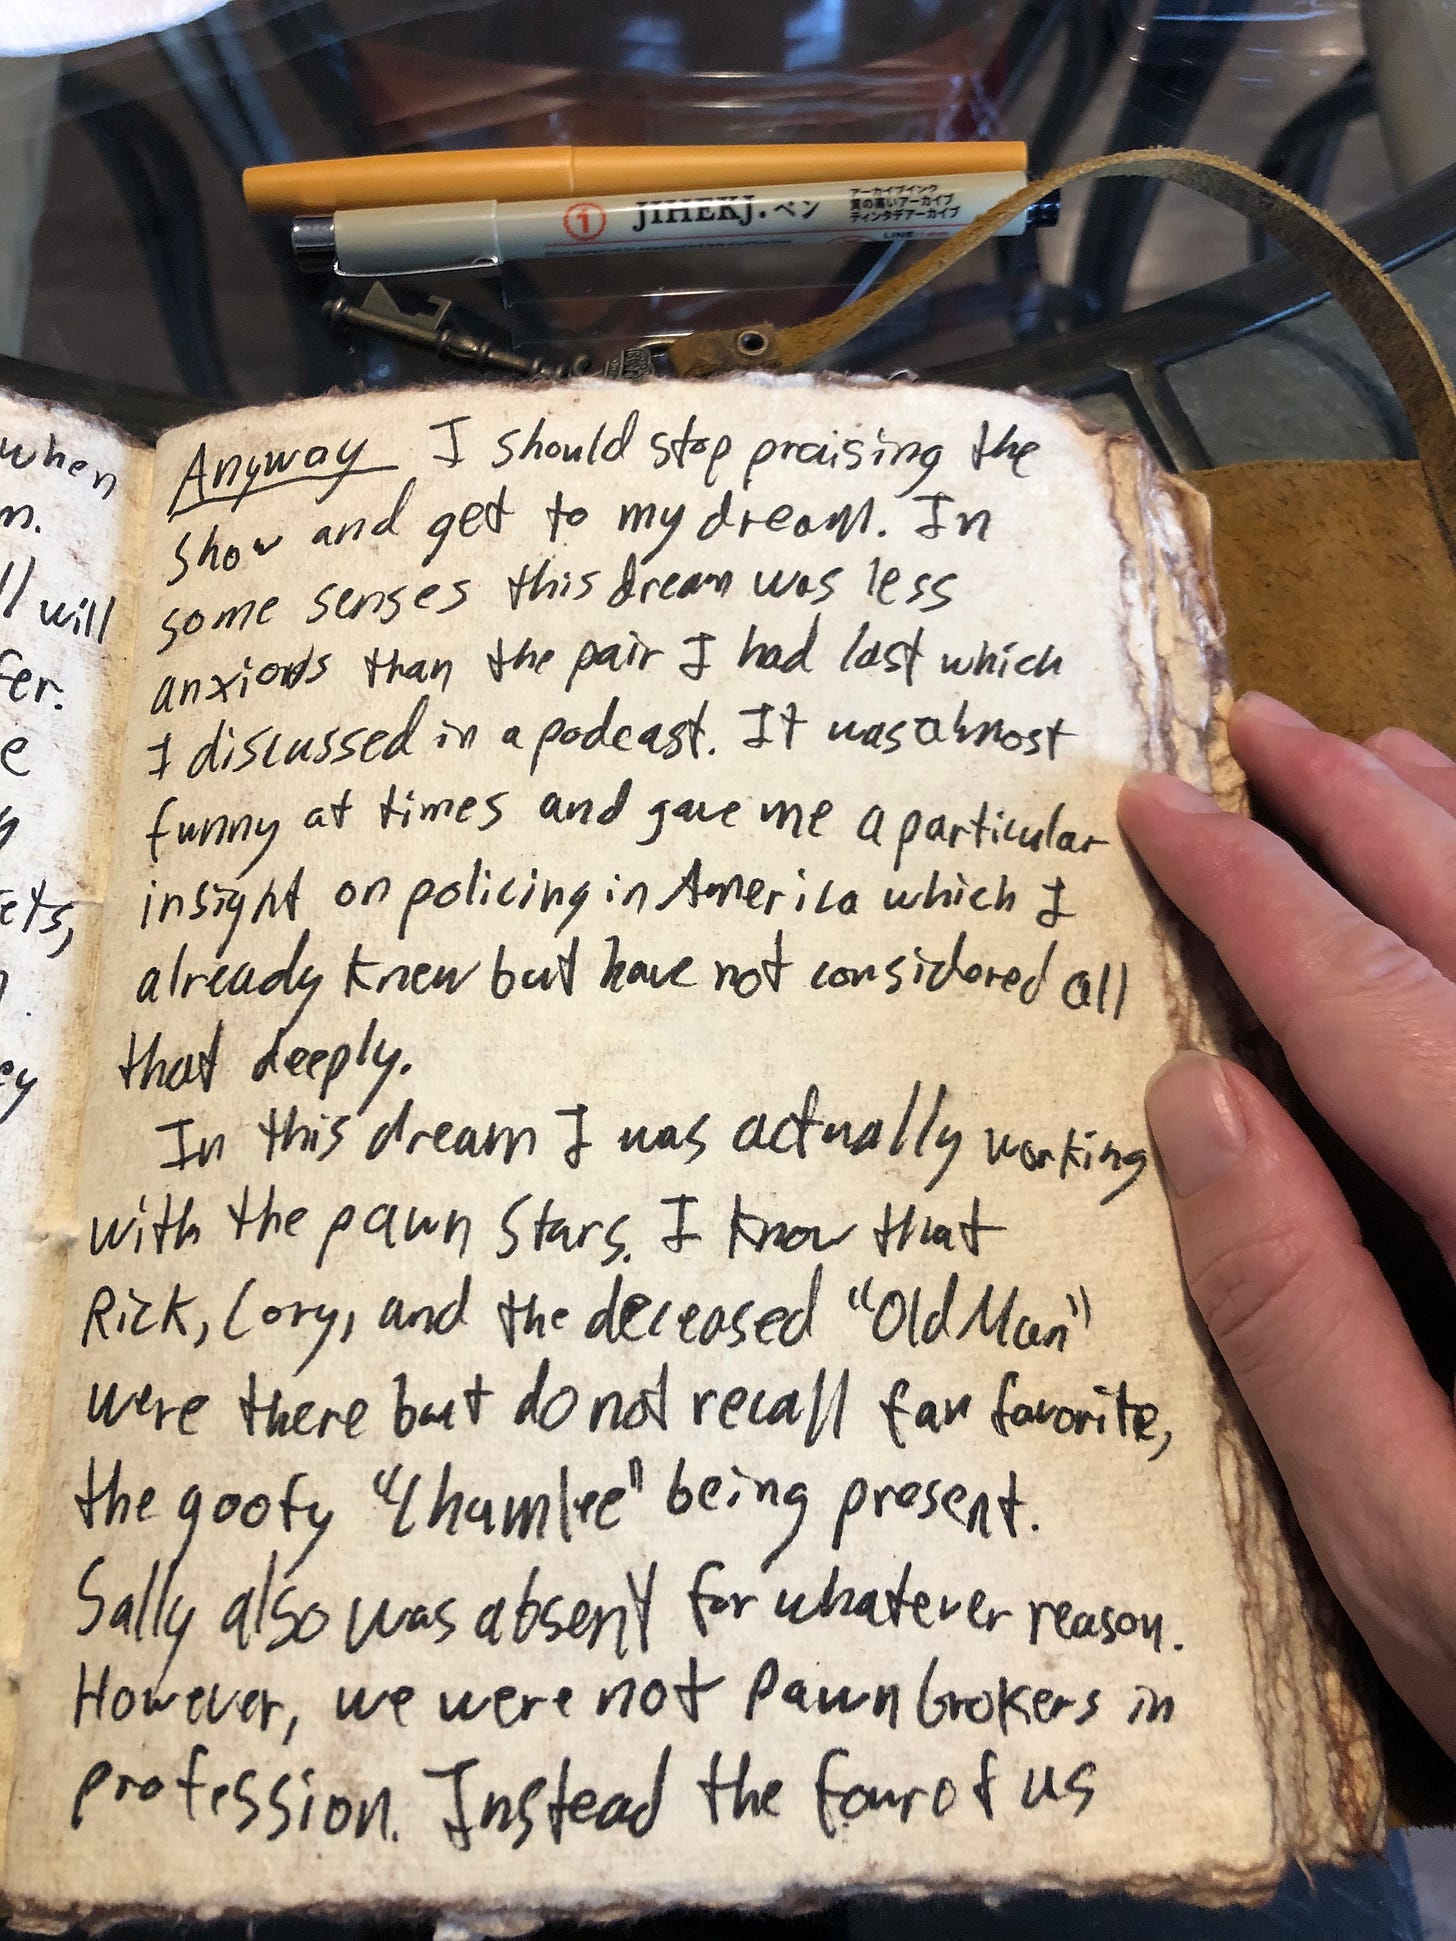 1
JIHEKJ. ペン
アーカイブインク
質の高いアーカイブ
ティンタデアーカイブ
LINE
when
m.
ll will
fer.
e
y
ets,
ey
Anyway I should stop praising the
show and get to my dream. In
some senses this dream was less
anxious than the pair I had last which
I discussed in a podcast. It was almost
funny at times and gave me a particular
insight on policing in America which I
already knew but have not considered all
that deeply.
In this dream I was actually working
with the pawn stars. I know that
Rick, Cory, and the deceased "Old Man"
were there but do not recall fan favorite,
the goofy "Chumlee" being present.
Sally also was absent for whatever reason.
However, we were not pawn brokers in
profession. Instead the four of us